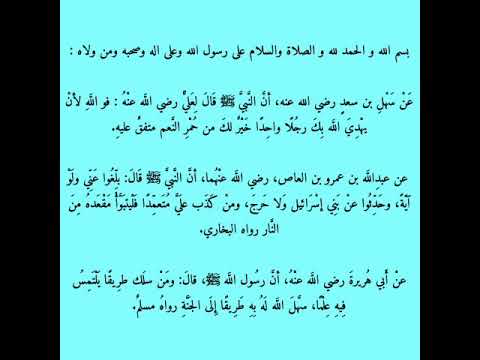 بسم الله و الحمد لله و الصلاة والسلام على رسول الله وعلى اله وصحبه ومن ولاه :
عَنْ سَهْلِ بن سعدٍ رضي الله عنه، أنَّ النَّبيَّ ﷺ قَالَ لِعَليٍّ رضي اللَّه عنْهُ : فو اللَّهِ لأنْ
يهْدِيَ اللَّه بِكَ رجُلًا واحِدًا خَيْرٌ لكَ من حُمْرِ النَّعم متفقٌ عليهِ.
عن عبداللَّه بن عمرو بن العاص، رضي اللَّه عنْهُما، أنَّ النَّبيَّ ﷺ قَالَ: بلِّغُوا عَنِّي ولَوْ
آيَةً، وحَدِّثُوا عنْ بَنِي إسْرَائيل وَلا حَرجَ، ومنْ كَذَب علَيَّ مُتَعمِّدًا فَلْيتَبَوَّأْ مَقْعَدهُ مِنَ
النَّار رواه البخاري.
عنْ أَبي هُريرةَ رضي اللَّه عنْهُ، أنَّ رسُول اللَّه ﷺ، قالَ: ومَنْ سلَك طريقًا يَلْتَمِسُ
فِيهِ عِلْمًا، سهَّلَ اللَّه لَهُ بِهِ طَرِيقًا إلَى الجَنَّةِ رواهُ مسلمٌ.